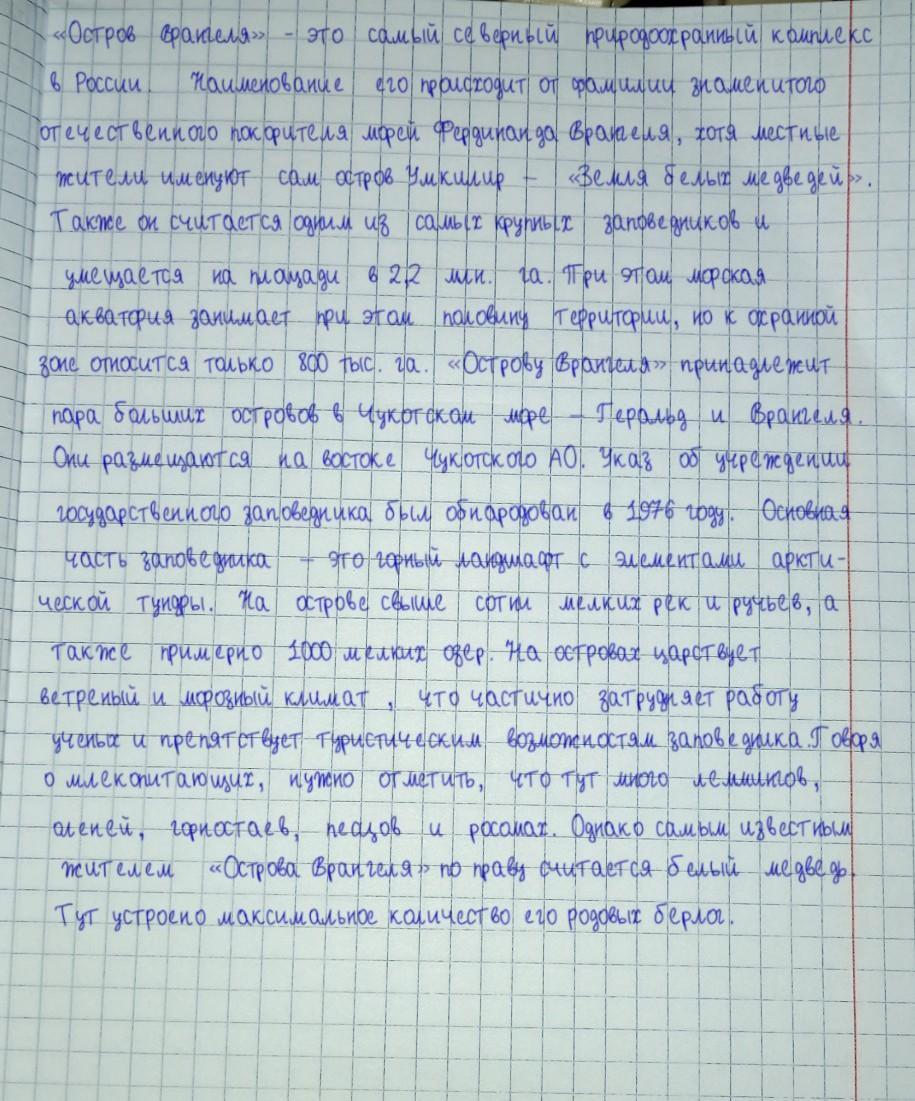 «Остров Врангеля» - это самый северный природоохранный комплекс
в России. Наименование его происходит от фамилии знаменитого
отечественного покорителя морей Фердинанда Врангеля, хотя местные
жители именуют сам остров Умкилир – «Земля белых медведей».
Также он считается одним из самых крупных заповедников и
умещается на площади в 2,2 млн. га. При этом морская
акватория занимает при этом половину территории, но к охранной
зоне относится только 800 тыс. га. «Острову Врангеля» принадлежит
пара больших островов в Чукотском море – Геральд и Врангеля.
Они размещаются на востоке Чукотского АО. Указ об учреждении
государственного заповедника был обнародован в 1976 году. Основная
часть заповедника – это горный ландшафт с элементами аркти-
ческой тундры. На острове свыше сотни мелких рек и ручьев, а
также примерно 1000 мелких озер. На островах царствует
ветреный и морозный климат, что частично затрудняет работу
ученых и препятствует туристическим возможностям заповедника. Говоря
о млекопитающих, нужно отметить, что тут много леммингов,
оленей, горностаев, песцов и росомах. Однако самым известным
жителем «Острова Врангеля» по праву считается белый медведь.
Тут устроено максимальное количество его родовых берлог.